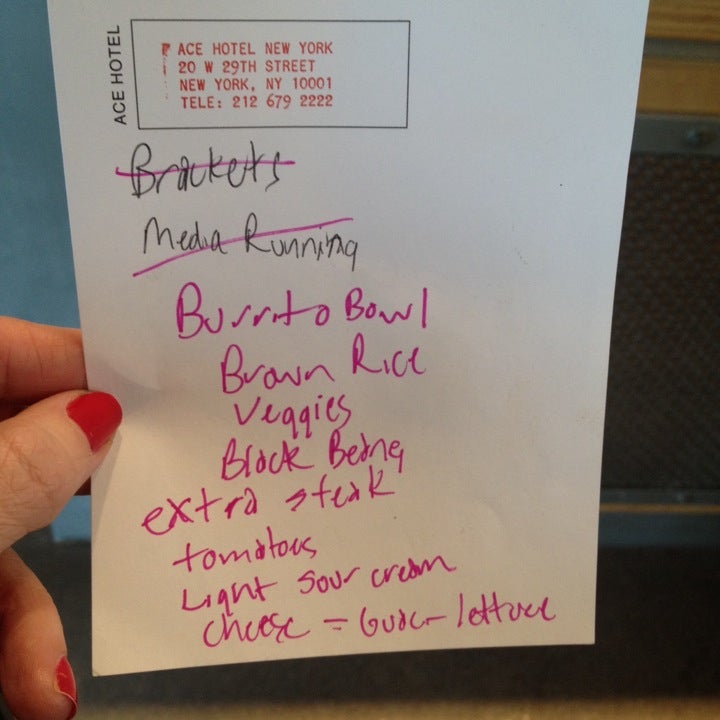 ACE HOTEL
ACE HOTEL NEW YORK
20 W 29TH STREET
NEW YORK, NY 10001
TELE: 212 679 2222
Brackets
Media Running
Burrito Bowl
Brown Rice
Veggies
Black Beans
extra steak
tomatoes
Light sour cream
cheese = Guac - lettuce